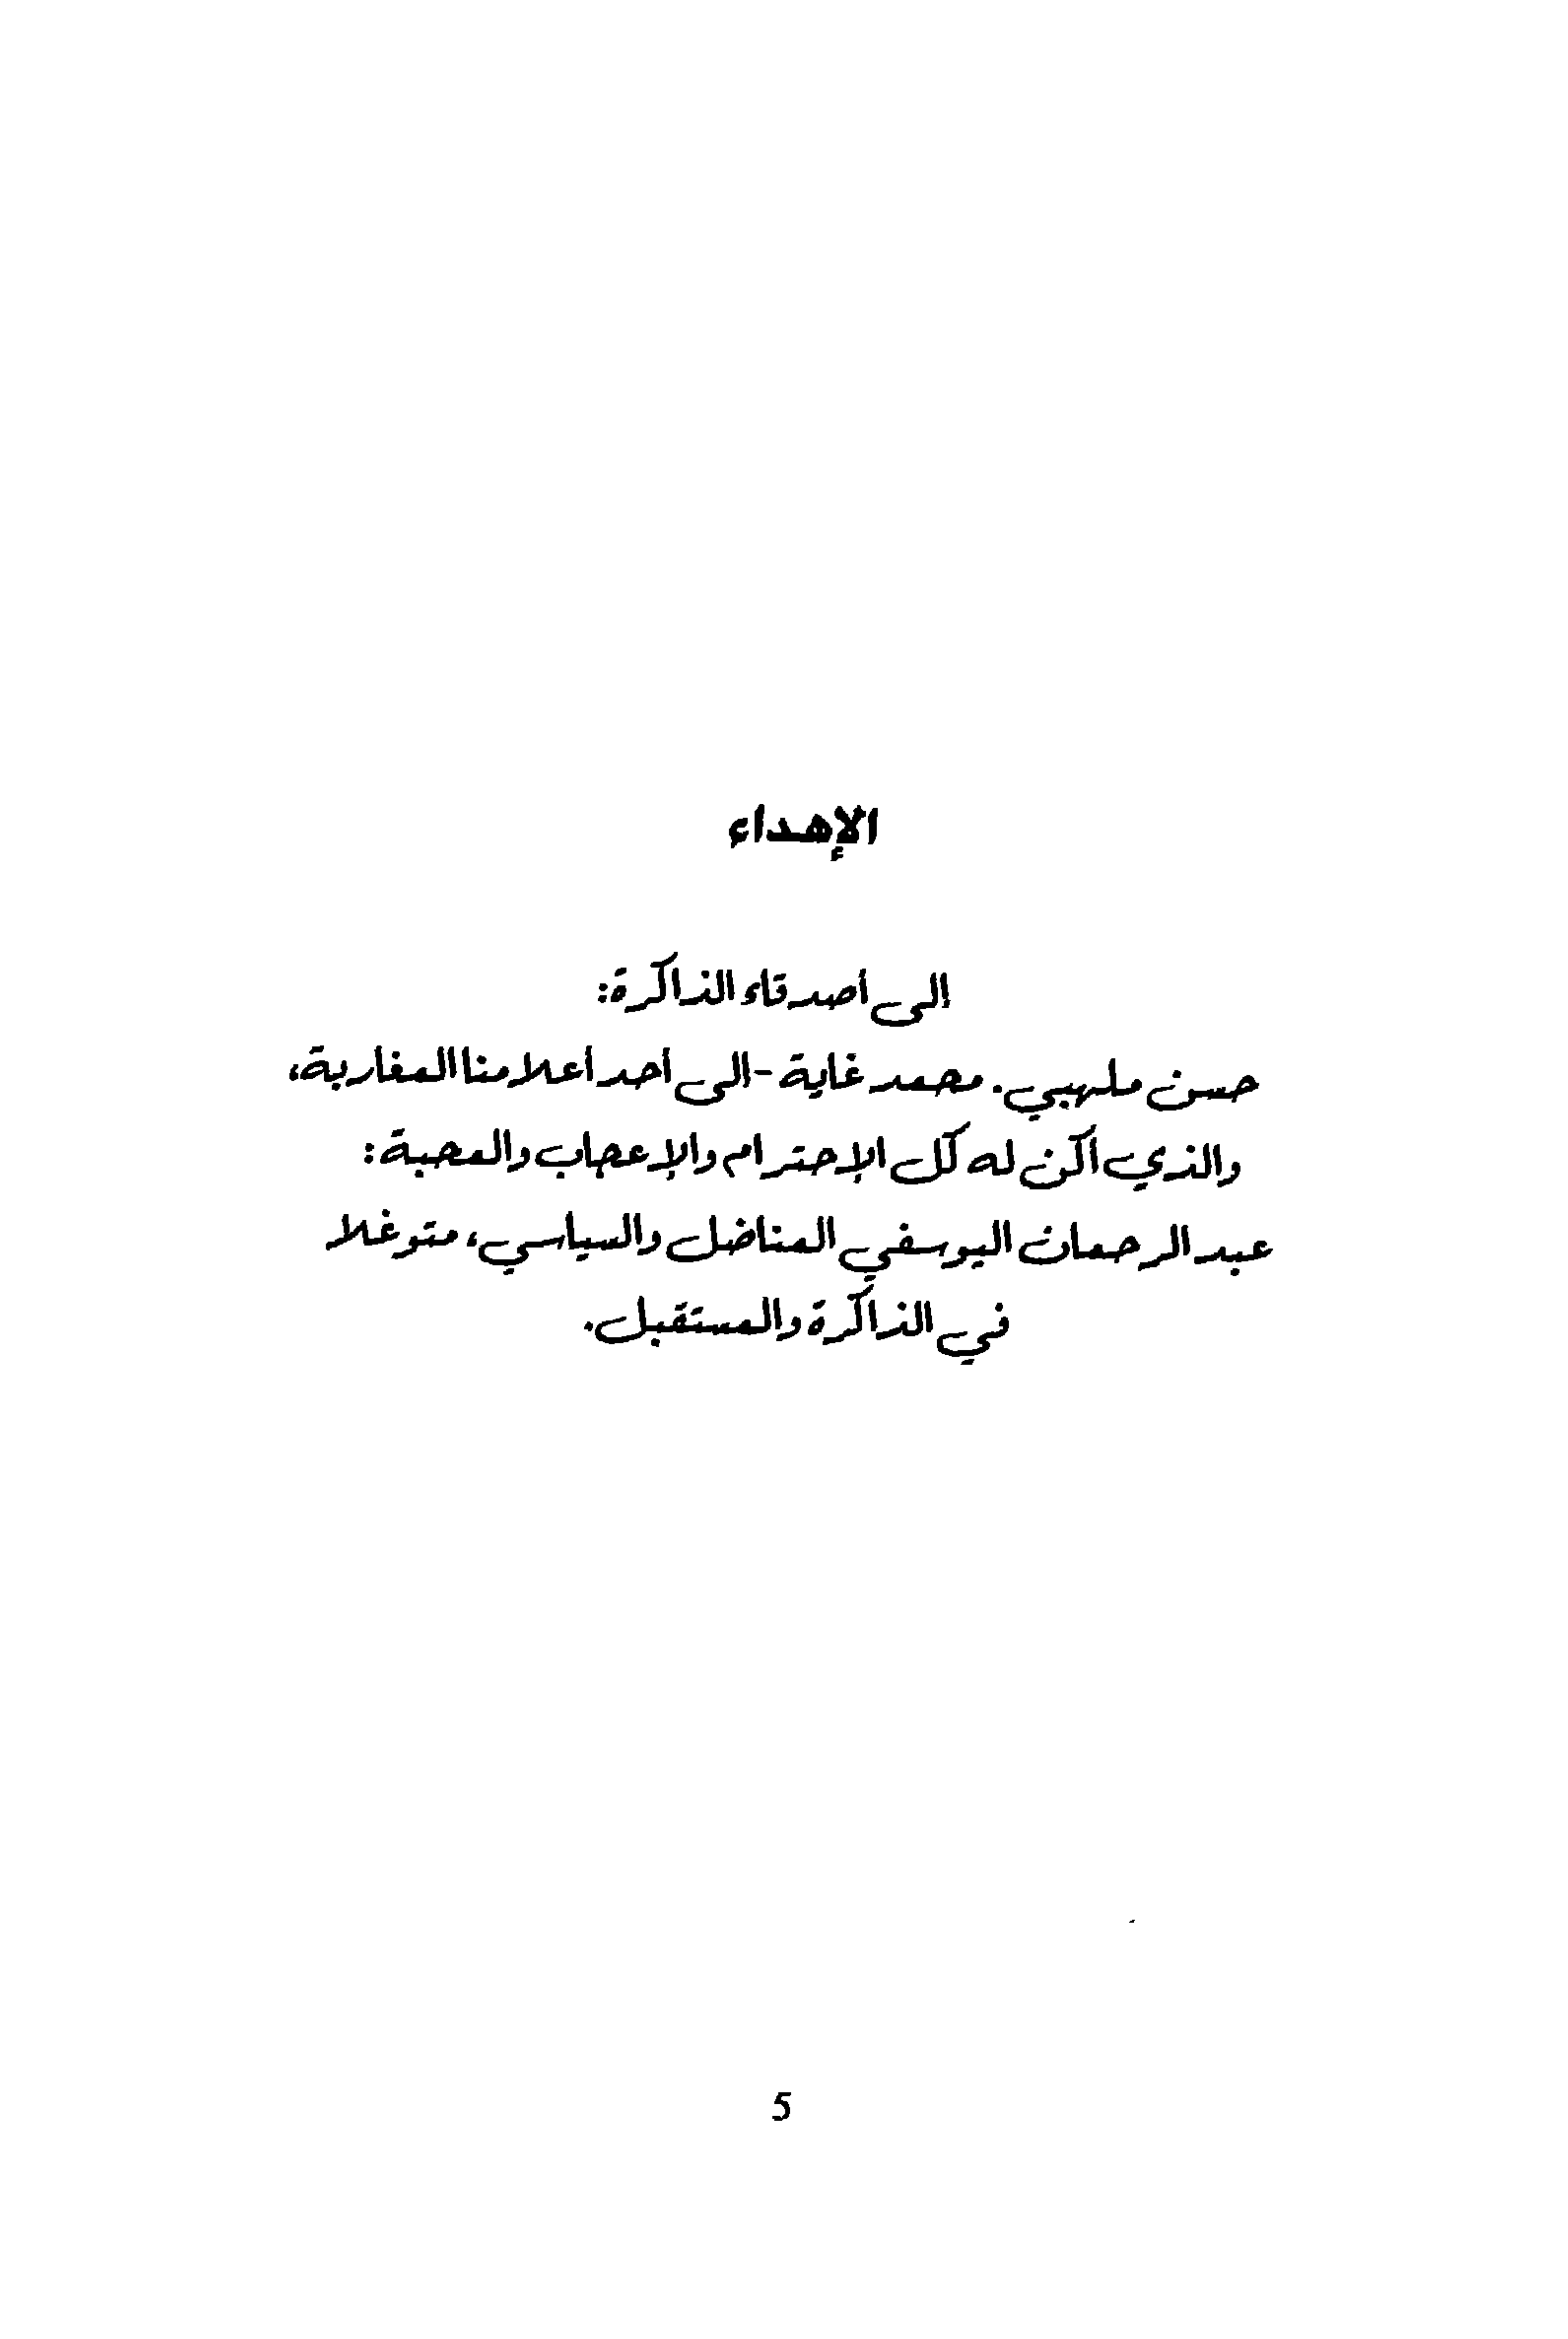 الإهداء
إلى أصدقاء الذاكرة:
حسن ملهبي. محمد غاية -إلى أحد أعلامنا المغاربة،
والذي أكن له كل الإحترام والإعجاب والمحبة:
عبد الرحمان اليوسفي المناضل والسياسي، متوغلا
في الذاكرة والمستقبل.
5